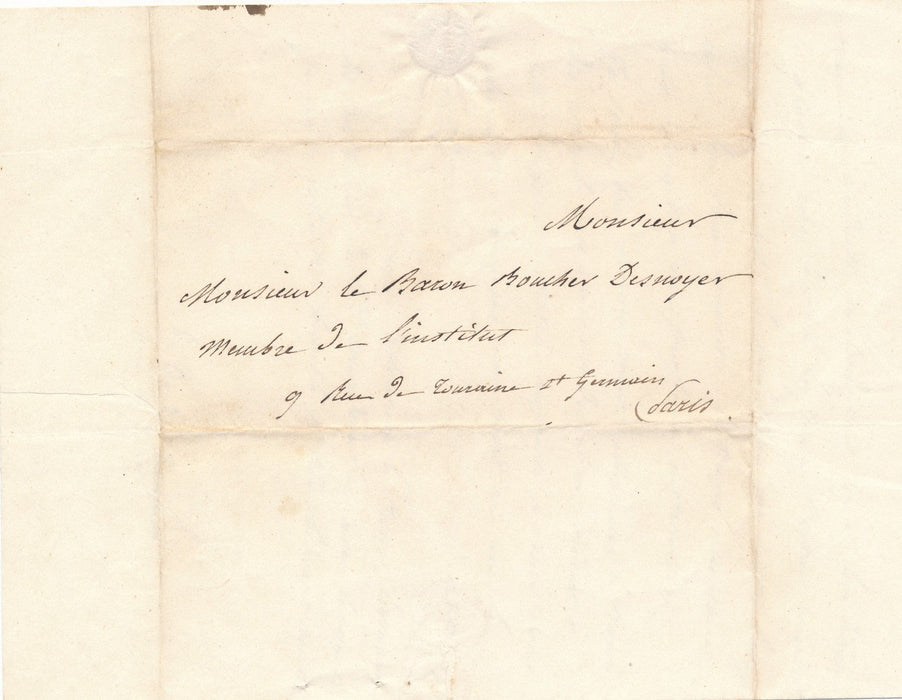 Monsieur
Monsieur le Baron Boucher Desnoyer
Membre de l'institut
9 Rue de Touraine St Germain
Paris